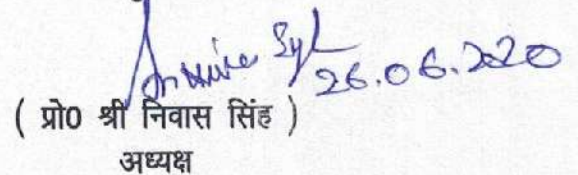 26.06.2020
( प्रो0 श्री निवास सिंह )
अध्यक्ष